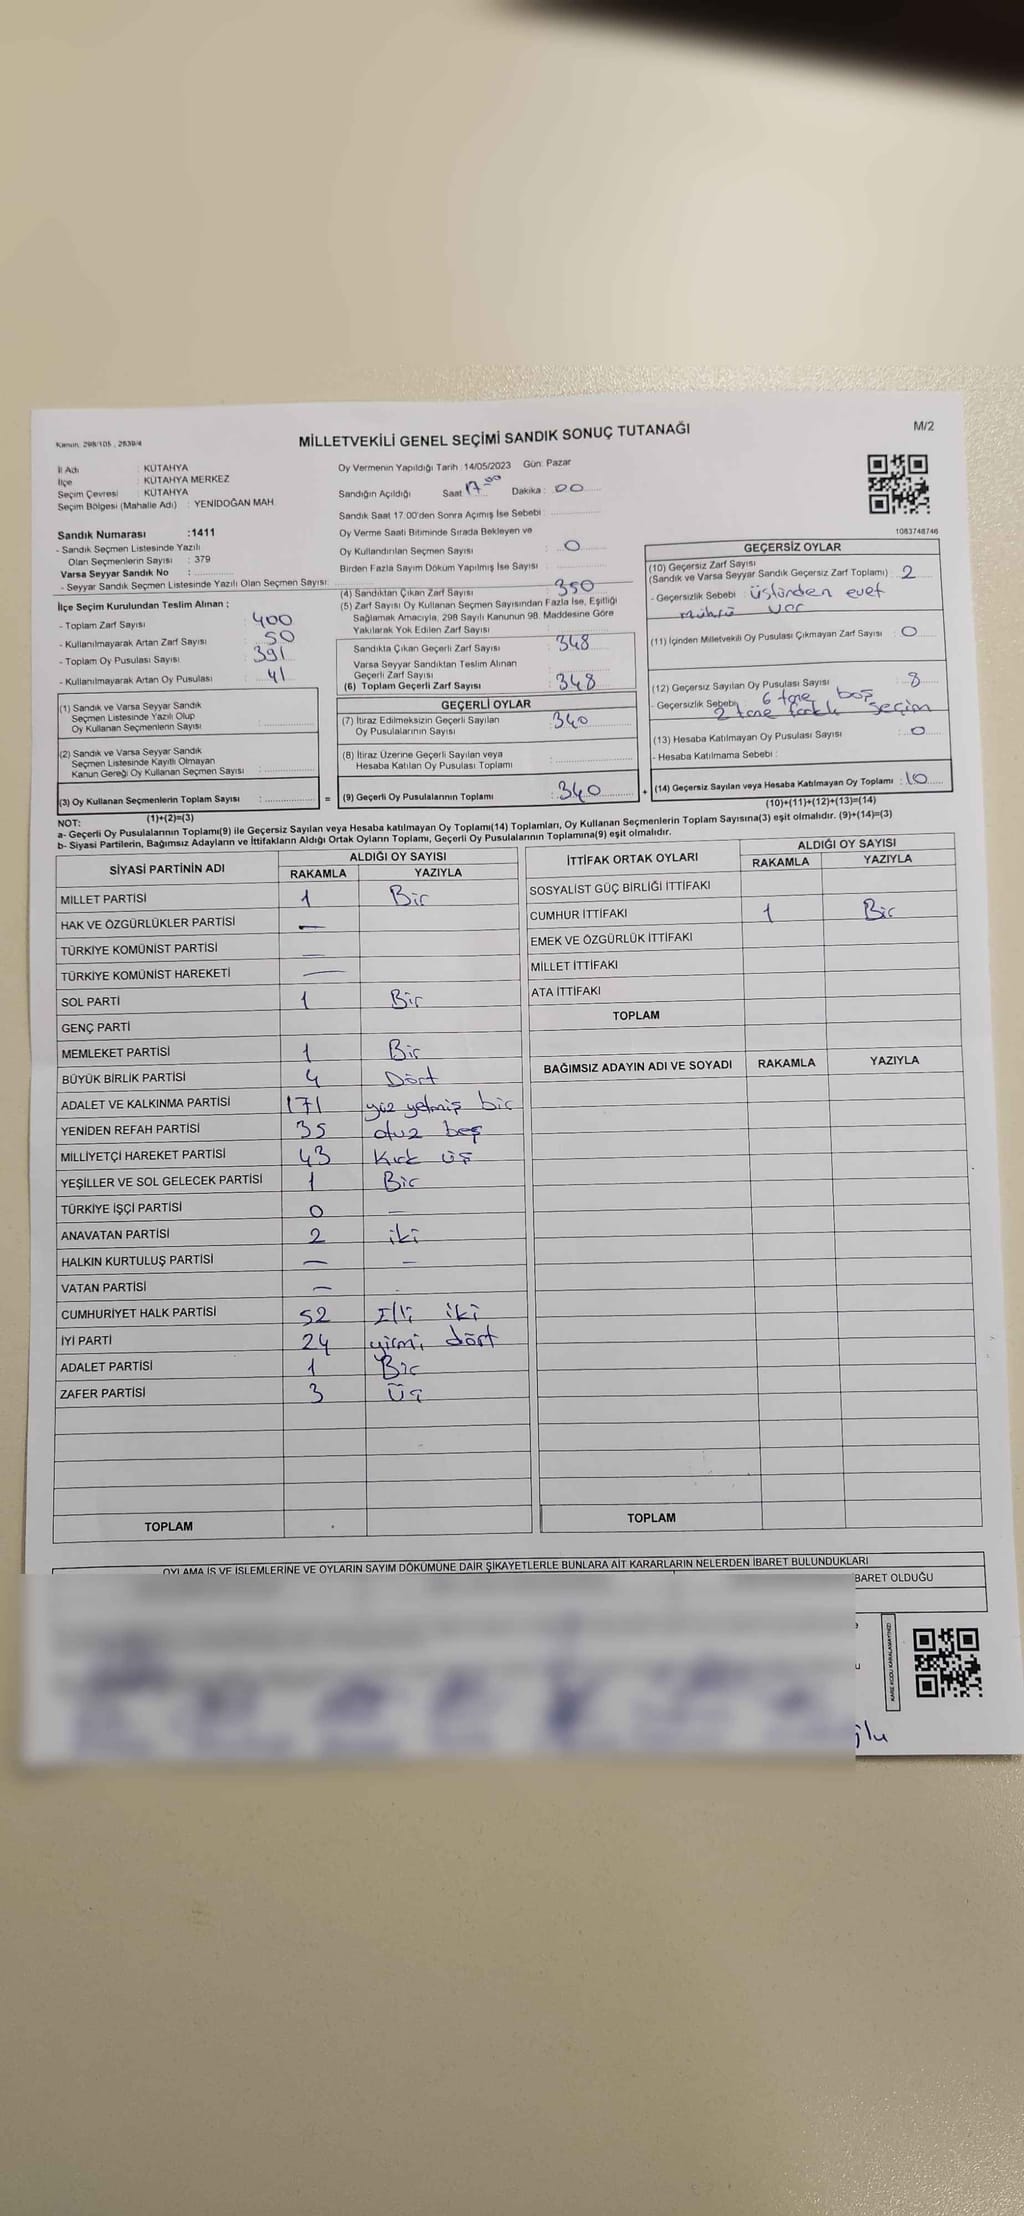 Kanun, 298/105 , 2839/4
MİLLETVEKİLİ GENEL SEÇİMİ SANDIK SONUÇ TUTANAĞI
M/2
İl Adı : KÜTAHYA
İlçe : KÜTAHYA MERKEZ
Seçim Çevresi : KÜTAHYA
Seçim Bölgesi (Mahalle Adı) : YENİDOĞAN MAH.
Sandık Numarası :1411
- Sandık Seçmen Listesinde Yazılı
Olan Seçmenlerin Sayısı : 379
Varsa Seyyar Sandık No :
- Seyyar Sandık Seçmen Listesinde Yazılı Olan Seçmen Sayısı:
İlçe Seçim Kurulundan Teslim Alınan ;
- Toplam Zarf Sayısı : 400
- Kullanılmayarak Artan Zarf Sayısı : 50
- Toplam Oy Pusulası Sayısı : 391
- Kullanılmayarak Artan Oy Pusulası : 41
(1) Sandık ve Varsa Seyyar Sandık
Seçmen Listesinde Yazılı Olup
Oy Kullanan Seçmenlerin Sayısı :
(2) Sandık ve Varsa Seyyar Sandık
Seçmen Listesinde Kayıtlı Olmayan
Kanun Gereği Oy Kullanan Seçmen Sayısı :
(3) Oy Kullanan Seçmenlerin Toplam Sayısı :
Oy Vermenin Yapıldığı Tarih : 14/05/2023 Gün: Pazar
Sandığın Açıldığı Saat 17.00 Dakika : 00
Sandık Saat 17:00'den Sonra Açımış İse Sebebi :
Oy Verme Saati Bitiminde Sırada Bekleyen ve
Oy Kullandırılan Seçmen Sayısı : 0
Birden Fazla Sayım Döküm Yapılmış İse Sayısı :
(4) Sandıktan Çıkan Zarf Sayısı : 350
(5) Zarf Sayısı Oy Kullanan Seçmen Sayısından Fazla İse, Eşitliği
Sağlamak Amacıyla, 298 Sayılı Kanunun 98. Maddesine Göre
Yakılarak Yok Edilen Zarf Sayısı :
Sandıkta Çıkan Geçerli Zarf Sayısı : 348
Varsa Seyyar Sandıktan Teslim Alınan
Geçerli Zarf Sayısı :
(6) Toplam Geçerli Zarf Sayısı : 348
GEÇERLİ OYLAR
(7) İtiraz Edilmeksizin Geçerli Sayılan : 340
Oy Pusulalarının Sayısı
(8) İtiraz Üzerine Geçerli Sayılan veya
Hesaba Katılan Oy Pusulası Toplamı :
= (9) Geçerli Oy Pusulalarının Toplamı : 340 +
1063748746
GEÇERSİZ OYLAR
(10) Geçersiz Zarf Sayısı
(Sandık ve Varsa Seyyar Sandık Geçersiz Zarf Toplamı) : 2
- Geçersizlik Sebebi : üstünden evet
mührü var
(11) İçinden Milletvekili Oy Pusulası Çıkmayan Zarf Sayısı : 0
(12) Geçersiz Sayılan Oy Pusulası Sayısı : 8
- Geçersizlik Sebebi: 6 tane boş
2 tane farklı seçim
(13) Hesaba Katılmayan Oy Pusulası Sayısı : 0
- Hesaba Katılmama Sebebi :
(14) Geçersiz Sayılan veya Hesaba Katılmayan Oy Toplamı : 10
(10)+(11)+(12)+(13)=(14)
NOT: (1)+(2)=(3)
a- Geçerli Oy Pusulalarının Toplamı(9) ile Geçersiz Sayılan veya Hesaba katılmayan Oy Toplamı(14) Toplamları, Oy Kullanan Seçmenlerin Toplam Sayısına(3) eşit olmalıdır. (9)+(14)=(3)
b- Siyasi Partilerin, Bağımsız Adayların ve İttifakların Aldığı Ortak Oyların Toplamı, Geçerli Oy Pusulalarının Toplamına(9) eşit olmalıdır.
SİYASİ PARTİNİN ADI ALDIĞI OY SAYISI
RAKAMLA YAZIYLA
MİLLET PARTİSİ 1 Bir
HAK VE ÖZGÜRLÜKLER PARTİSİ —
TÜRKİYE KOMÜNİST PARTİSİ —
TÜRKİYE KOMÜNİST HAREKETİ —
SOL PARTİ 1 Bir
GENÇ PARTİ
MEMLEKET PARTİSİ 1 Bir
BÜYÜK BİRLİK PARTİSİ 4 Dört
ADALET VE KALKINMA PARTİSİ 171 yüz yetmiş bir
YENİDEN REFAH PARTİSİ 35 otuz beş
MİLLİYETÇİ HAREKET PARTİSİ 43 Kırk üş
YEŞİLLER VE SOL GELECEK PARTİSİ 1 Bir
TÜRKİYE İŞÇİ PARTİSİ 0 —
ANAVATAN PARTİSİ 2 iki
HALKIN KURTULUŞ PARTİSİ — —
VATAN PARTİSİ —
CUMHURİYET HALK PARTİSİ 52 Elli iki
İYİ PARTİ 24 yirmi dört
ADALET PARTİSİ 1 Bir
ZAFER PARTİSİ 3 Üç
TOPLAM
İTTİFAK ORTAK OYLARI ALDIĞI OY SAYISI
RAKAMLA YAZIYLA
SOSYALİST GÜÇ BİRLİĞİ İTTİFAKI
CUMHUR İTTİFAKI 1 Bir
EMEK VE ÖZGÜRLÜK İTTİFAKI
MİLLET İTTİFAKI
ATA İTTİFAKI
TOPLAM
BAĞIMSIZ ADAYIN ADI VE SOYADI RAKAMLA YAZIYLA
TOPLAM
OYLAMA İŞ VE İŞLEMLERİNE VE OYLARIN SAYIM DÖKÜMÜNE DAİR ŞİKAYETLERLE BUNLARA AİT KARARLARIN NELERDEN İBARET BULUNDUKLARI
BARET OLDUĞU
KARE KODU KARALAMAYINIZ!